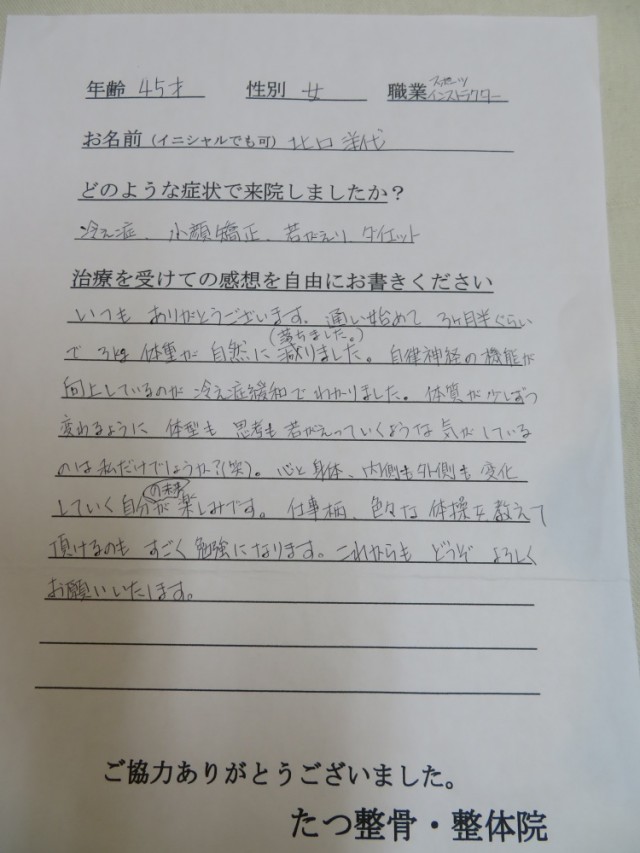 年齢 45才 性別 女 職業 スポーツインストラクター
お名前(イニシャルでも可) 北口 洋代
どのような症状で来院しましたか?
冷え症、小顔矯正、若がえり ダイエット
治療を受けての感想を自由にお書きください
いつも ありがとうございます。通い始めて 3ヶ月半ぐらい
で 3kg 体重が 自然に 減りました。(落ちました。) 自律神経の機能が
向上しているのが 冷え症緩和で わかりました。体質が 少しずつ
変わるように 体型も 思考も 若がえっていくような 気がしている
のは 私だけでしょうか?(笑)。心と身体、内側も外側も 変化
していく自分の未来が 楽しみです。仕事柄、色々な 体操を 教えて
頂けるのも すごく 勉強になります。これからも どうぞ よろしく
お願いいたします。
ご協力ありがとうございました。
たつ整骨・整体院